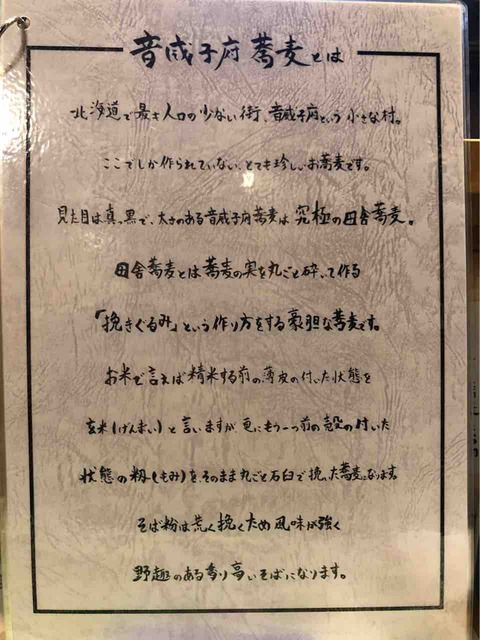 音威子府 蕎麦とは
北海道で最も人口の少ない街、音威子府という小さな村。
ここでしか作られていない、とても珍しいお蕎麦です。
見た目は真っ黒で、太さのある音威子府蕎麦は 究極の田舎蕎麦。
田舎蕎麦とは蕎麦の実を丸ごと砕いて作る
「挽きぐるみ」という作り方をする豪胆な蕎麦です。
お米で言えば精米する前の薄皮の付いた状態を
玄米(げんまい)と言いますが 更にもう一つ前の殻の付いた
状態の籾(もみ)を、そのまま丸ごと石臼で挽いた蕎麦になります。
そば粉は荒く挽くため風味が強く
野趣のある香り高いそばになります。